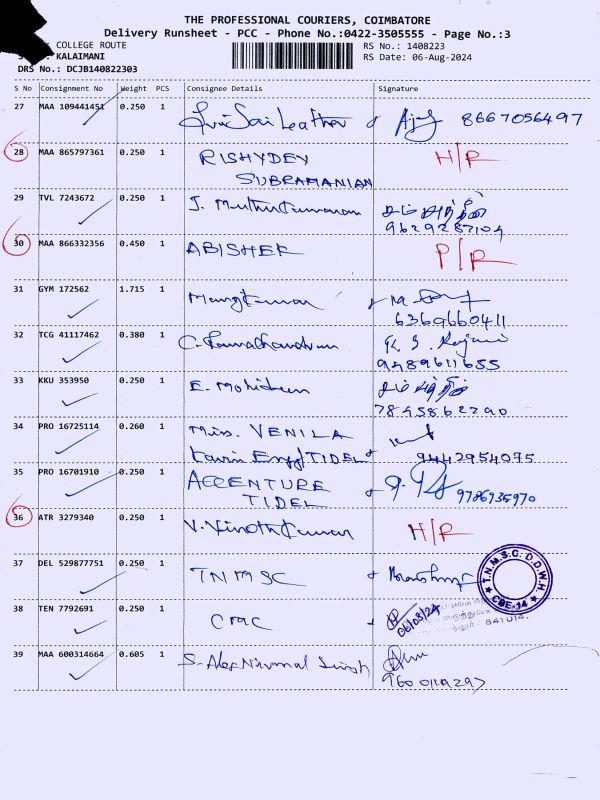 THE PROFESSIONAL COURIERS, COIMBATORE
Delivery Runsheet - PCC - Phone No.:0422-3505555 - Page No.:3
COLLEGE ROUTE RS No.: 1408223
KALAIMANI RS Date: 06-Aug-2024
DRS No.: DCJB140822303
S No Consignment No Weight PCS Consignee Details Signature
27 MAA 109441451 0.250 1 Sri Sai Leather 8667056497
28 MAA 865797361 0.250 1 RISHYDEV H/R
SUBRAMANIAN
29 TVL 7243672 0.250 1 J. Muthukumaran
9629287109
30 MAA 866332356 0.450 1 ABISHEK P/R
31 GYM 172562 1.715 1
6369660411
32 TCG 41117462 0.380 1 C. Ramachandran K. S. Rajani
9489611655
33 KKU 353950 0.250 1 E. Mohideen
7845862290
34 PRO 16725114 0.260 1 Miss. VENILA
TIDEL 9442954075
35 PRO 16701910 0.250 1 ACCENTURE
TIDEL 9786935970
36 ATR 3279340 0.250 1 V. Vinoth Kumar H/R
37 DEL 529877751 0.250 1 TNMSC T.N.M.S.C. D.D.W.H. CBE-14
38 TEN 7792691 0.250 1 06/08/24
641 014.
39 MAA 600314664 0.605 1 S. Alex Nirmal Singh